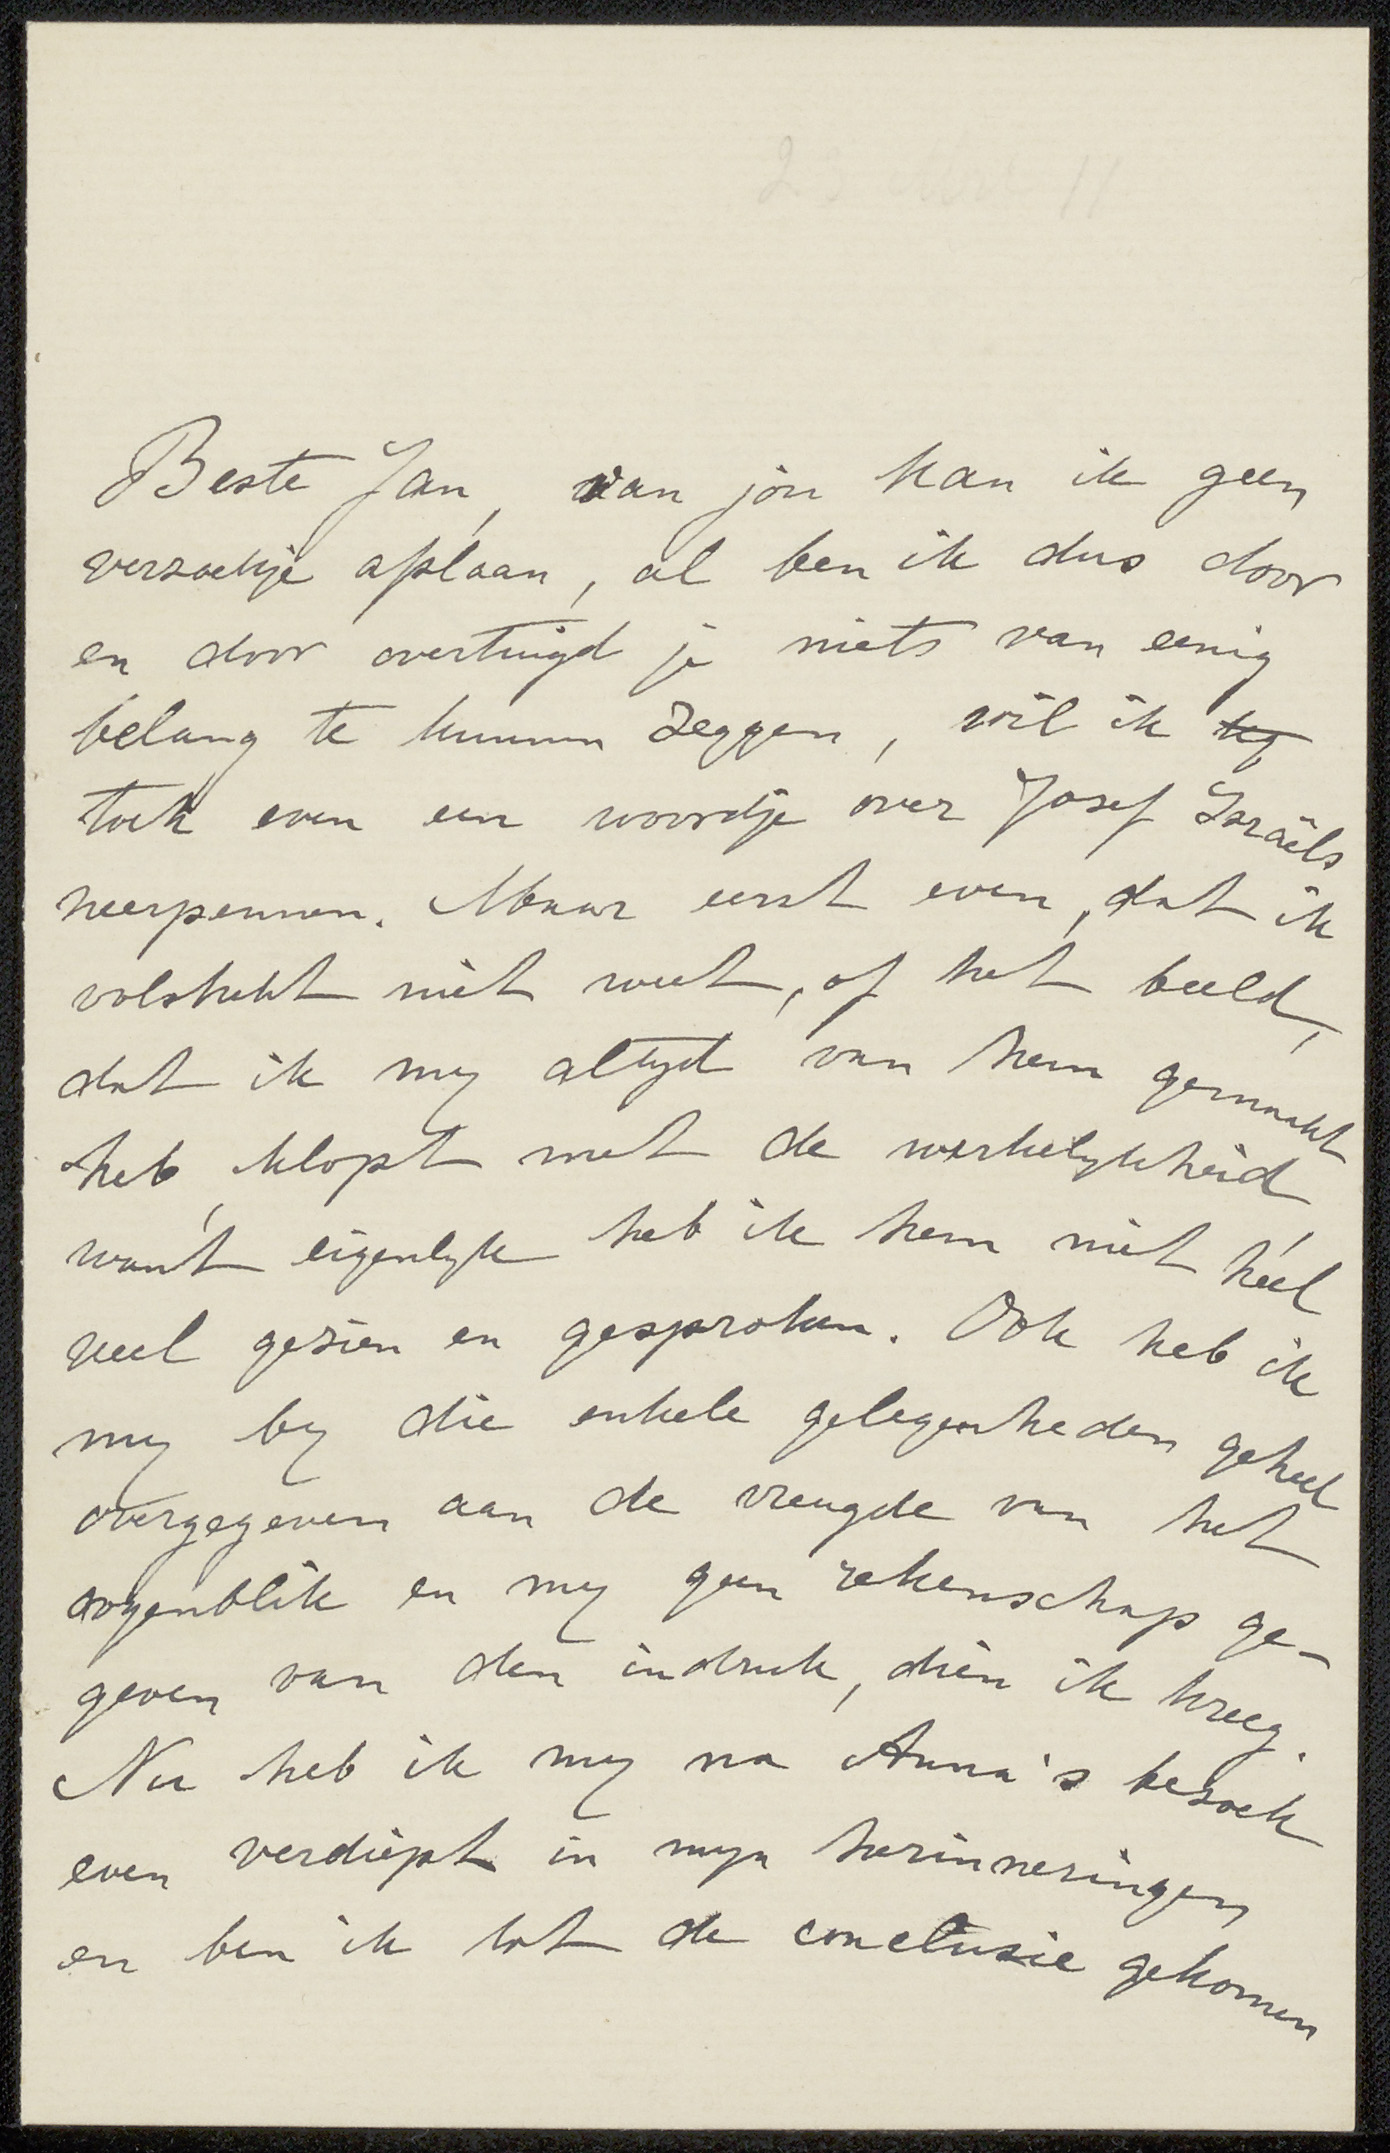 Beste Jan, van jou kan ik geen
verzoekje afslaan, al ben ik dus door
en door overtuigd je niets van eenig
belang te kunnen zeggen, wil ik
toch even een woordje over Josef Israëls
neerpennen. Maar eerst even, dat ik
volstrekt niet weet, of het beeld,
dat ik my altyd van hem gemaakt
heb, klopt met de werkelykheid,
want eigenlyk heb ik hem niet héél
veel gezien en gesproken. Ook heb ik
my by die enkele gelegenheden geheel
overgegeven aan de vreugde van het
oogenblik en my geen rekenschap ge-
geven van den indruk, dien ik kreeg.
Nu heb ik my na Anna's bezoek
even verdiept in myn herinneringen
en ben ik tot de conclusie gekomen